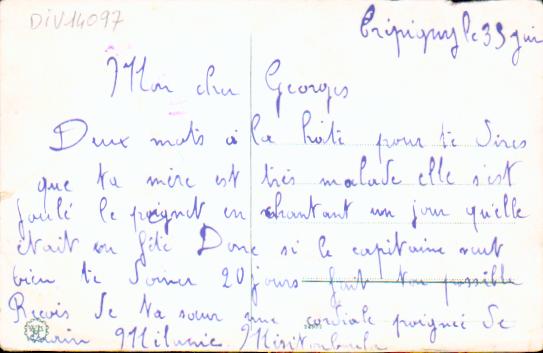 DIV14097
Crépigny le 33 juin
Mon cher Georges
Deux mots à la hâte pour te dires
que ta mère est très malade elle s'est
foulé le poignet en chantant un jour qu'elle
était en fête Donc si le capitaine veut
bien te donner 20 jours fait ton possible
Reçois de ta sœur une cordiale poignée de
main Mélanie